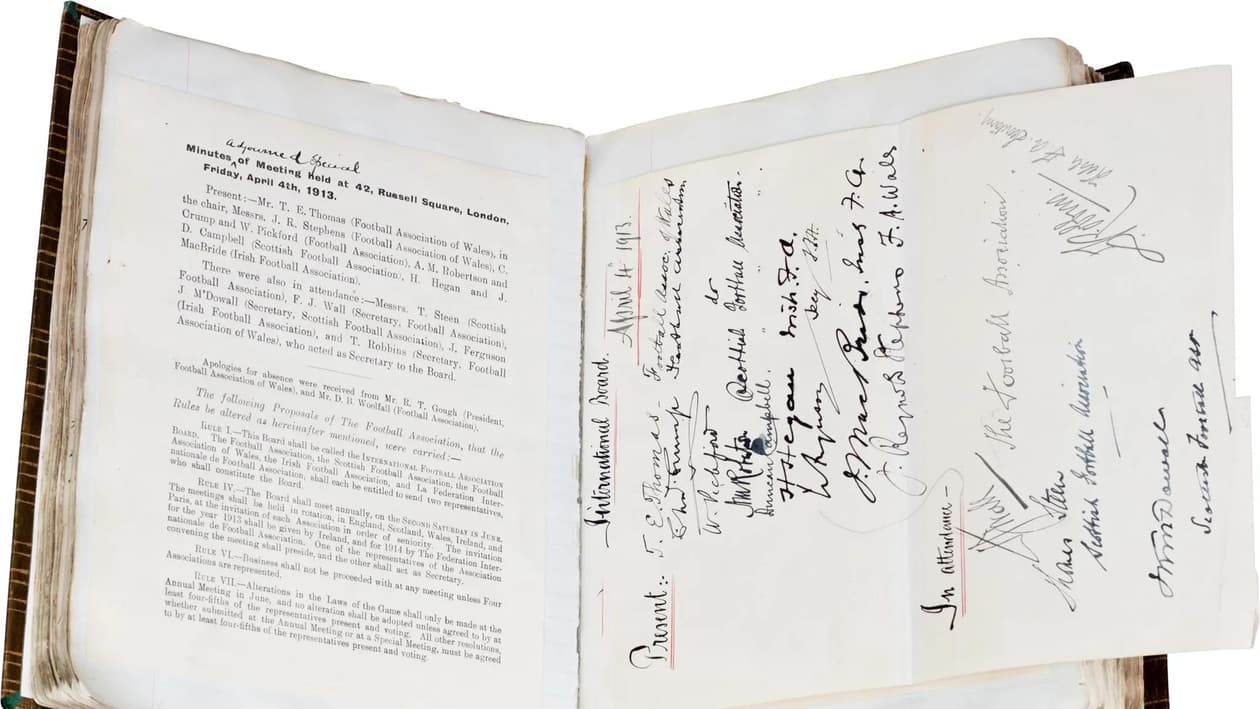 adjourned Special
Minutes ^ of Meeting held at 42, Russell Square, London,
Friday, April 4th, 1913.
Present:—Mr. T. E. Thomas (Football Association of Wales), in
the chair, Messrs. J. R. Stephens (Football Association of Wales), C.
Crump and W. Pickford (Football Association), A. M. Robertson and
D. Campbell (Scottish Football Association), H. Hegan and J.
MacBride (Irish Football Association).
There were also in attendance:—Messrs. T. Steen (Scottish
Football Association), F. J. Wall (Secretary, Football Association),
J. M'Dowall (Secretary, Scottish Football Association), J. Ferguson
(Irish Football Association), and T. Robbins (Secretary, Football
Association of Wales), who acted as Secretary to the Board.
Apologies for absence were received from Mr. R. T. Gough (President,
Football Association of Wales), and Mr. D. B. Woolfall (Football Association).
The following Proposals of The Football Association, that the
Rules be altered as hereinafter mentioned, were carried:—
RULE I.—This Board shall be called the INTERNATIONAL FOOTBALL ASSOCIATION
BOARD. The Football Association, the Scottish Football Association, the Football
Association of Wales, the Irish Football Association, and La Federation Inter-
nationale de Football Association, shall each be entitled to send two representatives,
who shall constitute the Board.
RULE IV.—The Board shall meet annually, on the SECOND SATURDAY IN JUNE.
The meetings shall be held in rotation, in England, Scotland, Wales, Ireland, and
Paris, at the invitation of each Association in order of seniority. The invitation
for the year 1913 shall be given by Ireland, and for 1914 by The Federation Inter-
nationale de Football Association. One of the representatives of the Association
convening the meeting shall preside, and the other shall act as Secretary.
RULE VI.—Business shall not be proceeded with at any meeting unless Four
Associations are represented.
RULE VII.—Alterations in the Laws of the Game shall only be made at the
Annual Meeting in June, and no alteration shall be adopted unless agreed to by at
least four-fifths of the representatives present and voting. All other resolutions,
whether submitted at the Annual Meeting or at a Special Meeting, must be agreed
to by at least four-fifths of the representatives present and voting.
International Board. April 4th 1913.
Present:- T. E. Thomas - Football Assoc. of Wales
Chas Crump Football Association
W. Pickford do
AM Robertson Scottish Football Association.
Duncan Campbell. " " "
H Hegan Irish. F. A.
J. MacBride. Irish F. A.
J. Reynolds Stephens F. A. Wales
In attendance -
The Football Association
Thomas Steen
Scottish Football Association
John McDowall
Scottish Football Assn